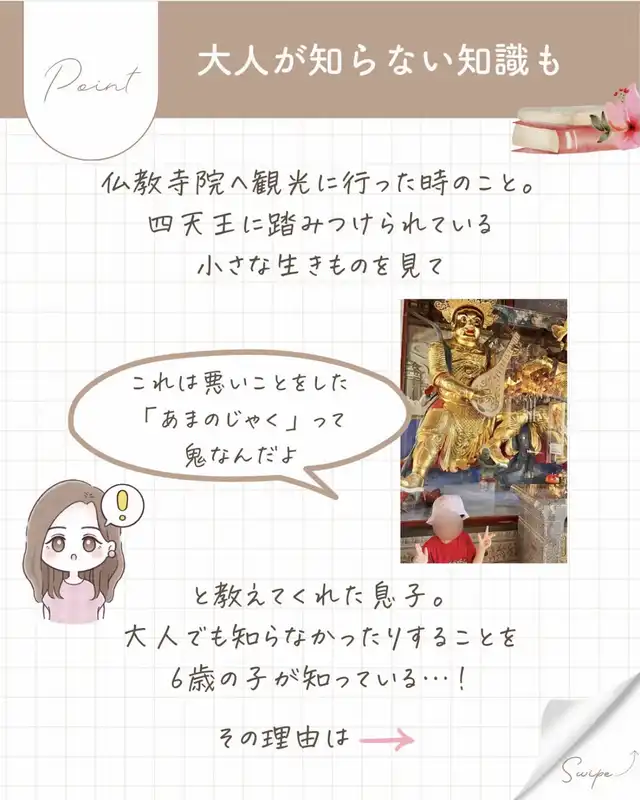 Point
大人が知らない知識も
仏教寺院へ観光に行った時のこと。
四天王に踏みつけられている
小さな生きものを見て
これは悪いことをした
「あまのじゃく」って
鬼なんだよ
!
と教えてくれた息子。
大人でも知らなかったりすることを
6歳の子が知っている…!
その理由は
Swipe